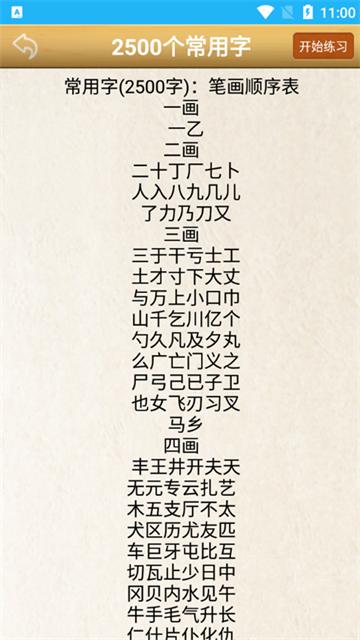 11:00
2500个常用字
开始练习
常用字(2500字)：笔画顺序表
一画
一乙
二画
二十丁厂七卜
人入八九几儿
了力乃刀又
三画
三于干亏士工
土才寸下大丈
与万上小口巾
山千乞川亿个
勺久凡及夕丸
么广亡门义之
尸弓己已子卫
也女飞刃习叉
马乡
四画
丰王井开夫天
无元专云扎艺
木五支厅不太
犬区历尤友匹
车巨牙屯比互
切瓦止少日中
冈贝内水见午
牛手毛气升长
仁什片仆化仇